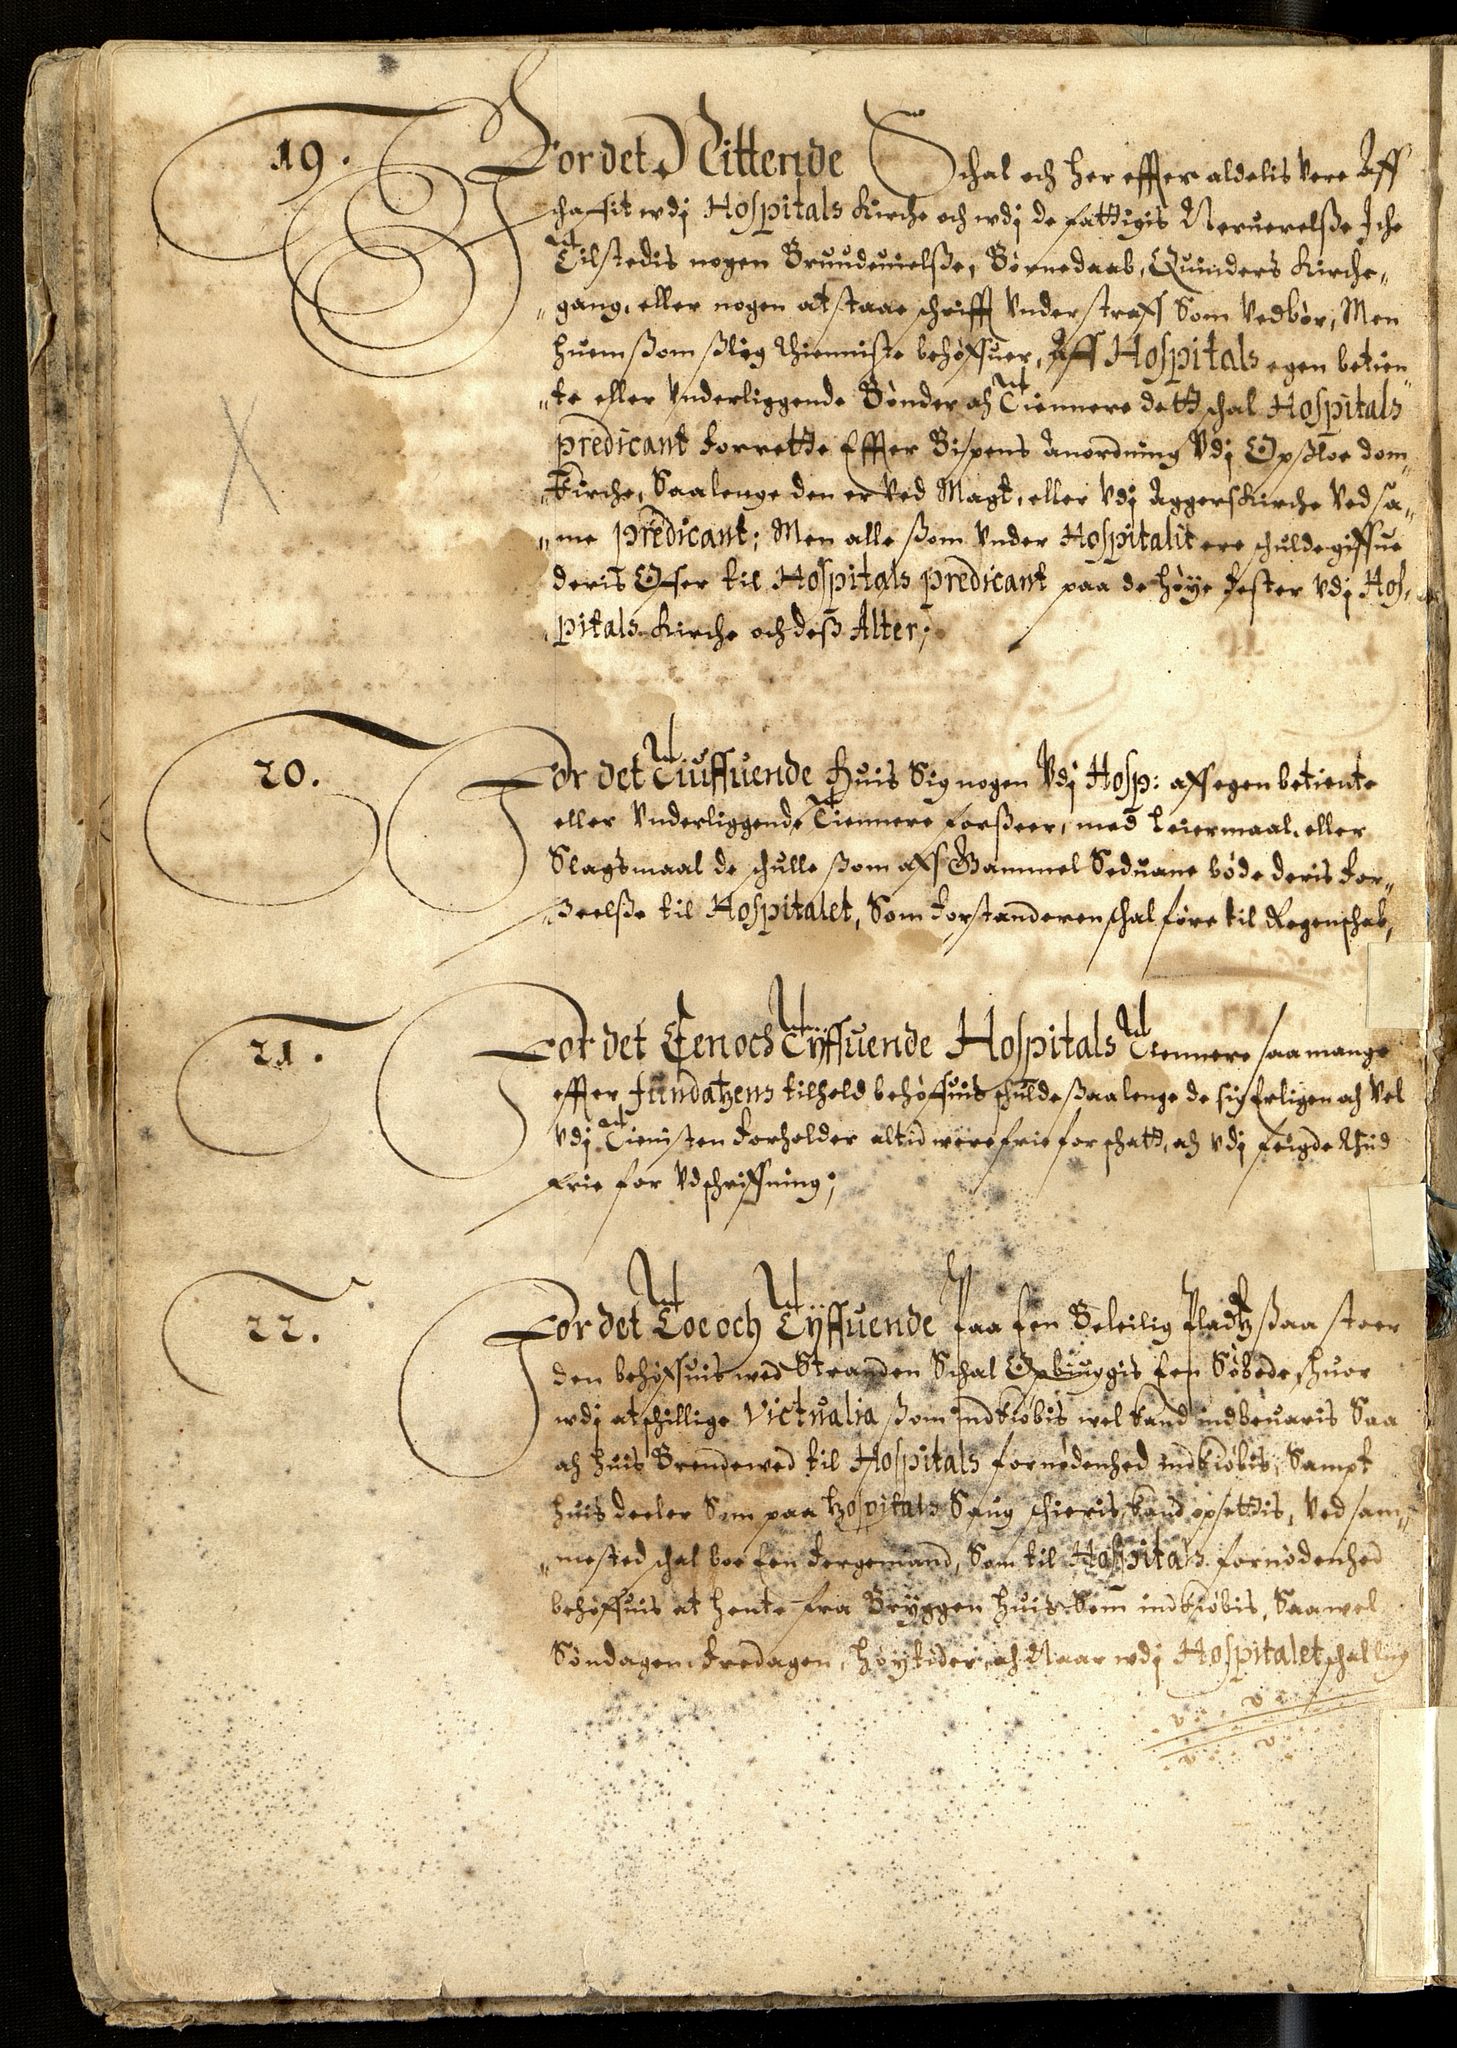 19. For det Nittende Schal och her effter aldelis vere Aff
chaffit wdj Hospitals Kirche och wdj de fattigis Neruerelße Iche
Tilstedis nogen Bruudeuielße, Børnedaab, Quinders Kirche„
„gang, eller nogen at staae schrifft vnder straff Som vedbør, Men
huem ßom ßlig thienniste behøffuer, Aff Hospitals egen betien„
„te eller vnderliggende Bønder och Tiennere dett schal Hospitals
predicant forrette Effter Bispens Anordning Vdj Opßloe dom„
„Kirche, Saalenge den er ved Magt, eller vdj Aggers Kirche ved sa„
„me predicant; Men alle ßom vnder Hospitalit ere schulde giffue
deris Offer til Hospitals predicant paa de høye fester vdj Hos„
„pitals Kirche och deß Alter;
20. For det Tiuffuende Huis Sig nogen Vdj Hosp: aff egen betiente
eller vnderliggende Tiennere forßeer, med Leiermaal, eller
Slagsmaal de schulle ßom aff Gammel Seduane bøde deris for„
„ßeelße til Hospitalet, Som forstanderen schal føre til Regenschab,
21. For det Een och Tyffuende Hospitals Tiennere saa mange
effter fundatzens tilhold behøffuis schulde ßaa lenge de sig erligen och vel
vdj Tienisten forholder altid were frie for schatt, och vdj feigde thiid
frie for vdschriffning;
22. For det Toe och Tyffuende Paa Een Beleilig Pladtz ßaa stoer
den behøffuis wed Stranden Schal Opbiuggis Een Søbode, huor
wdj atschillige Victualia ßom indkiøbis wel kand indbeuaris Saa
och huis Brendewed til Hospitals fornødenhed indkiøbis, Sampt
huis deeler Som paa Hospitals Saug schieris, kand opsettis, Ved sam„
„mested schal boe Een fergemand, Som til Hospitals fornødenhed
behøffuis at hente fra Bryggen huis Som indkiøbis, Saawel
Søndagen, fredagen, høytider, och Naar wdj Hospitalet schal lug